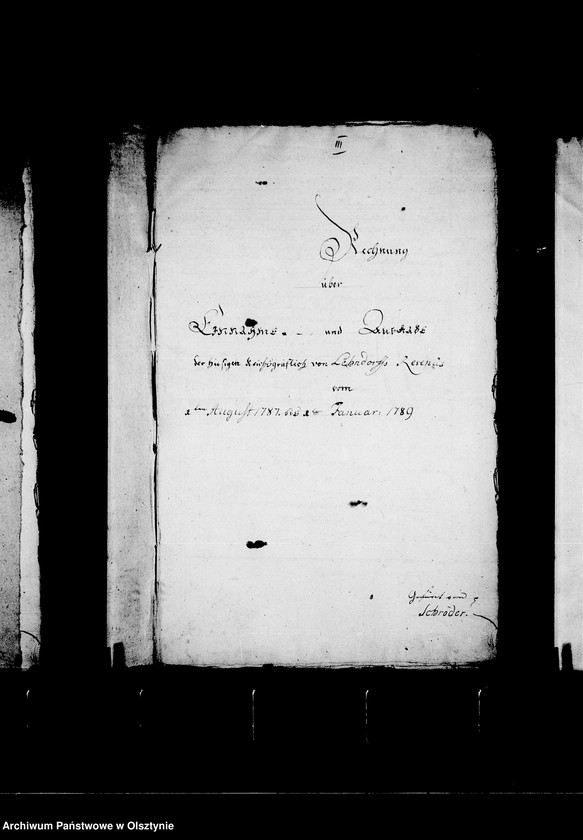 III
Rechnung
über
Einnahme und Ausgabe
der hiesigen Reichsgräflich von Lehndorffs Revenüs
vom
August 1787 bis Januari 1789
Geführt von
Schröder.
Archiwum Państwowe w Olsztynie